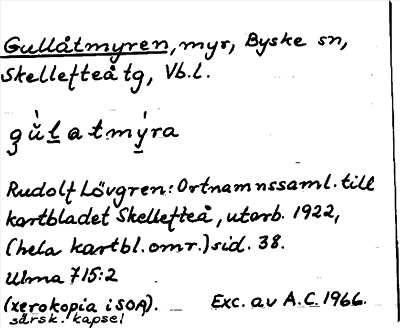 Gullåtmyren, myr, Byske sn,
Skellefteå tg, Vb.l.
gu̇̆l̲atmý̲ra
Rudolf Lövgren: Ortnamnssaml. till
kartbladet Skellefteå, utarb. 1922,
(hela kartbl.omr.) sid. 38.
Ulma 715:2
(xerokopia i SOA). Exc. av A.C. 1966.
särsk. kapsel